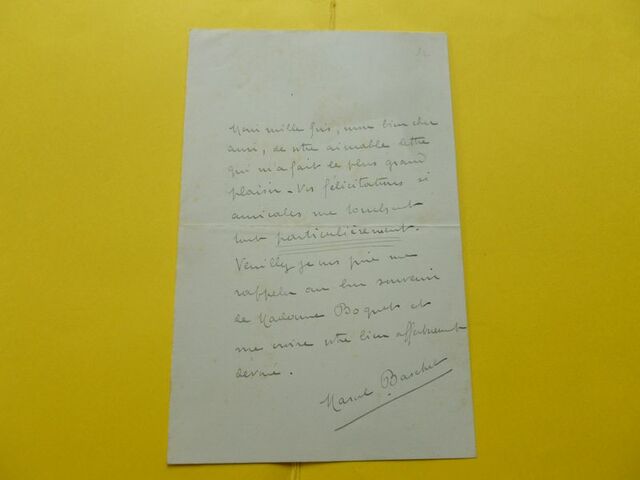 Merci mille fois, mon bien cher
ami, de votre aimable lettre
qui m'a fait le plus grand
plaisir - Vos félicitations si
amicales me touchent
tout particulièrement.
Veuillez je vous prie me
rappeler au bon souvenir
de Madame Boquet et
me croire votre bien affectueusement
dévoué.
Marcel Baschet